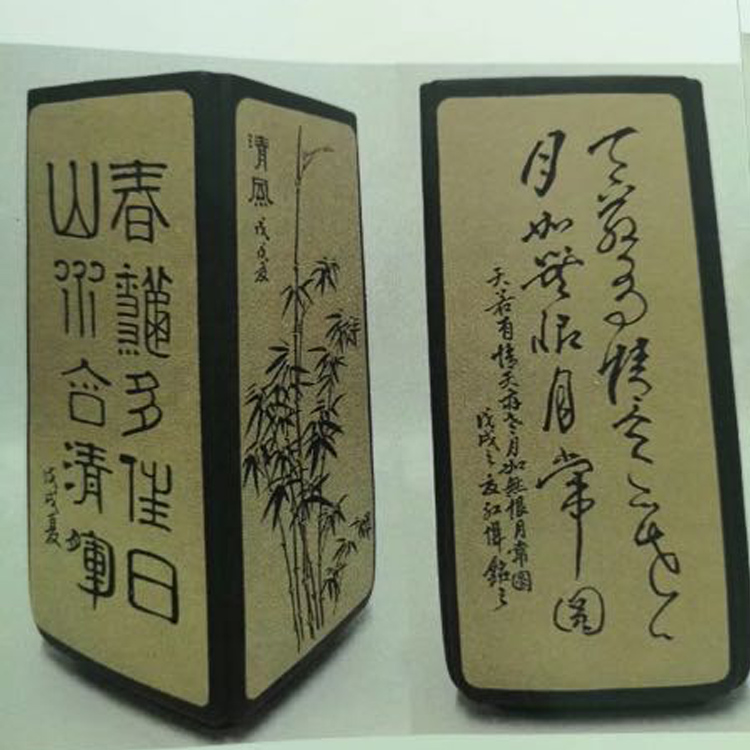 春龝多佳日
山水含清輝
戊戌夏
清風
戊戌夏
天若有情天亦老
月如無恨月常圓
天若有情天亦老月如無恨月常圓
戊戌之夏紅偉銘之